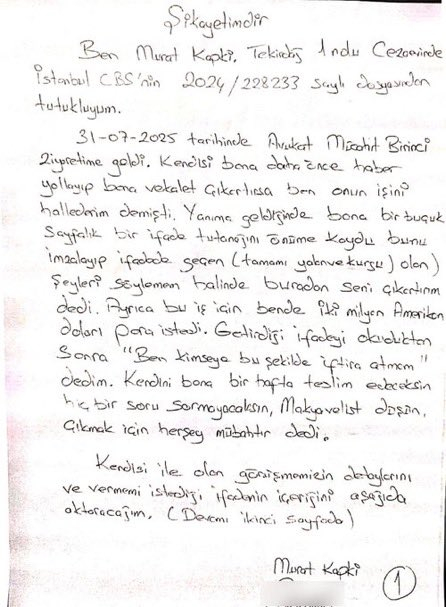 Şikayetimdir
Ben Murat Kapki, Tekirdağ 1 nolu Cezaevinde
İstanbul CBS'nin 2024/228233 sayılı dosyasından
tutukluyum.
31-07-2025 tarihinde Avukat Mücahit Birinci
ziyaretime geldi. Kendisi bana daha önce haber
yollayıp bana vekalet çıkartılırsa ben onun işini
hallederim demişti. Yanıma geldiğinde bana bir buçuk
Sayfalık bir ifade tutanağını önüme koydu bunu
imzalayıp ifadede geçen (tamamı yalan ve kurgu) olan)
Şeyleri söylemem halinde buradan seni çıkartırım
dedi. Ayrıca bu iş için benden iki milyon Amerikan
doları para istedi. Getirdiği ifadeyi okuduktan
Sonra "Ben kimseye bu şekilde iftira atmam"
dedim. Kendini bana bir hafta teslim edeceksin
hiç bir soru sormayacaksın, Makyavelist düşün,
Çıkmak için herşey mübahtır dedi.
Kendisi ile olan görüşmemizin detaylarını
ve vermemi istediği ifadenin içeriğini aşağıda
aktaracağım. (Devamı ikinci sayfada)
Murat Kapki
1